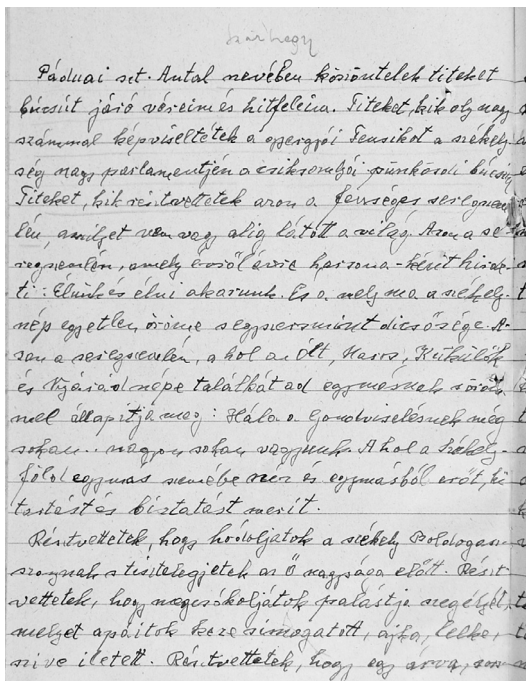 Szárhegy
Páduai szt. Antal nevében köszöntelek titeket
búcsút járó véreim és hitfeleim. Titeket, kik oly nagy
számmal képviseltétek a gyergyói Fensikot a székely-
ség nagy parlamentjén a csiksomlyói pünkösdi búcsun
Titeket, kik résztvettetek azon a fenséges seregszem
lén, amilyet nem vagy alig látott a világ. Azon a se
regszemlén, amely évről évre harsona-ként hirde
ti: Élünk és élni akarunk. És a mely ma a székely-
nép egyetlen öröme s egyszersmint dicsősége. A-
zon a seregszemlén, a hol az Olt, Maros, Küküllők
és Nyárád népe találkát ad egymásnak s
nell állapitja meg: Hála a Gondviselésnek még
sokan.. nagyon sokan vagyunk. A hol a Székely-
föld egymas szemébe néz és egymásból erőt, ki
tartást és biztatást merit.
Résztvettetek, hogy hódoljatok a székely Boldogasz
szonynak s tisztelegjetek az Ő nagysága előtt. Részt
vettetek, hogy megcsókoljátok palástja szegélyét,
melyet apáitok keze simogatott, ajka, lelke,
szive illetett. Résztvettetek, hogy egy árva,